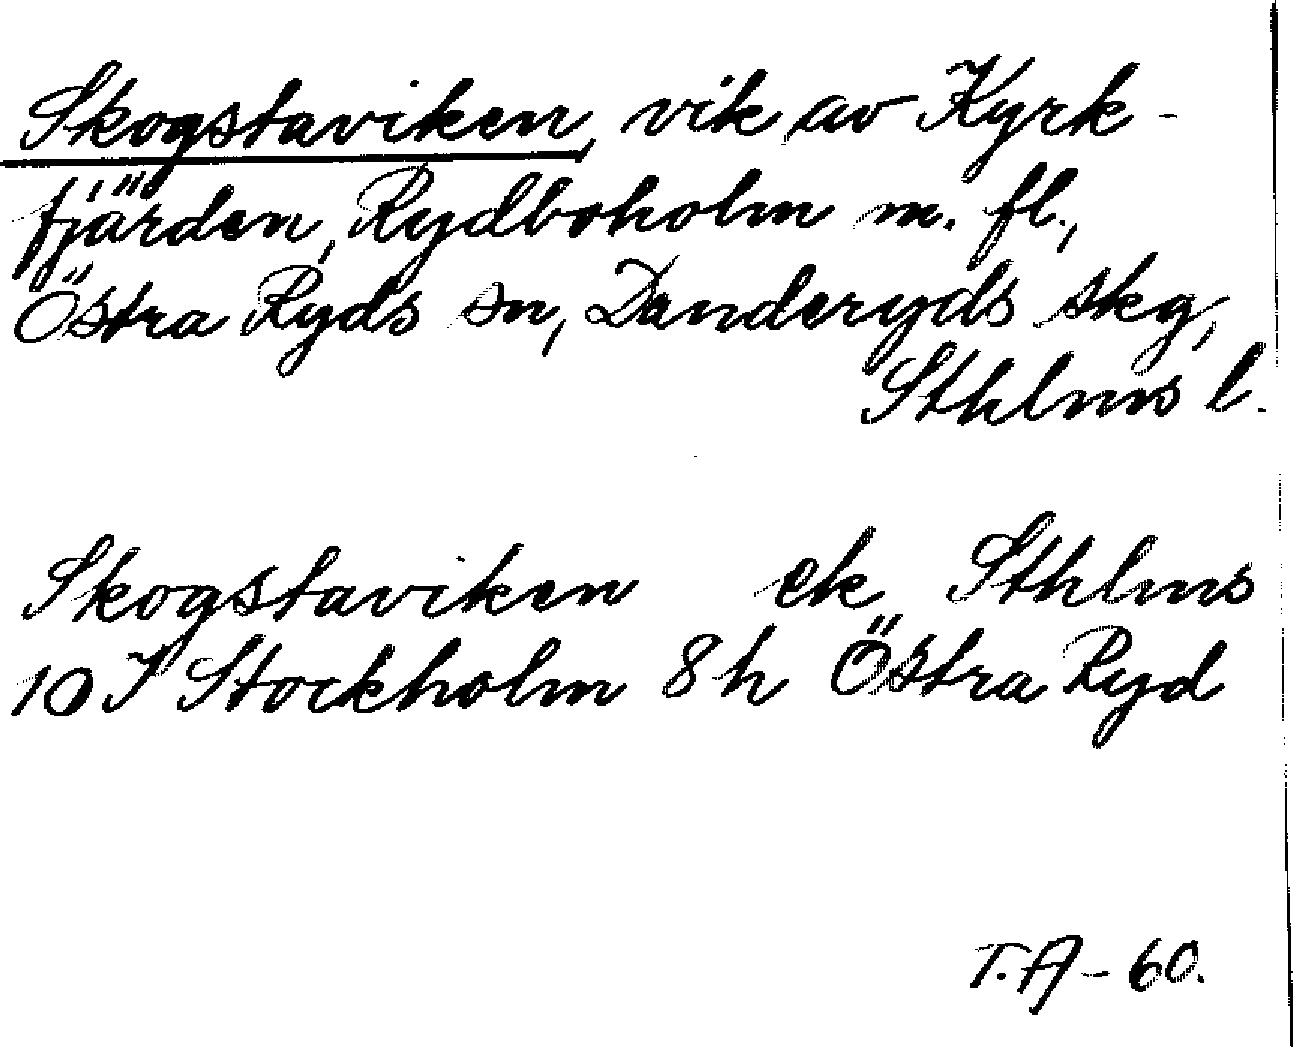 Skogstaviken, vik av Kyrk-
fjärden, Rydboholm m. fl.,
Östra Ryds sn, Danderyds skg,
Sthlms l.
Skogstaviken ek Sthlms
10 I Stockholm 8h Östra Ryd
T.A-60.